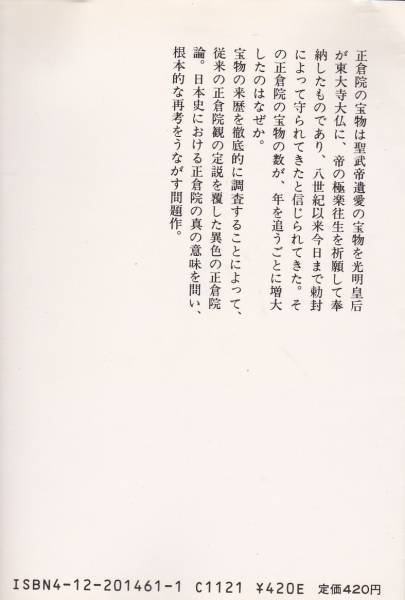 正倉院の宝物は聖武帝遺愛の宝物を光明皇后
が東大寺大仏に、帝の極楽往生を祈願して奉
納したものであり、八世紀以来今日まで勅封
によって守られてきたと信じられてきた。そ
の正倉院の宝物の数が、年を追うごとに増大
したのはなぜか。
宝物の来歴を徹底的に調査することによって、
従来の正倉院観の定説を覆した異色の正倉院
論。日本史における正倉院の真の意味を問い、
根本的な再考をうながす問題作。
ISBN4-12-201461-1 C1121 ¥420E 定価420円